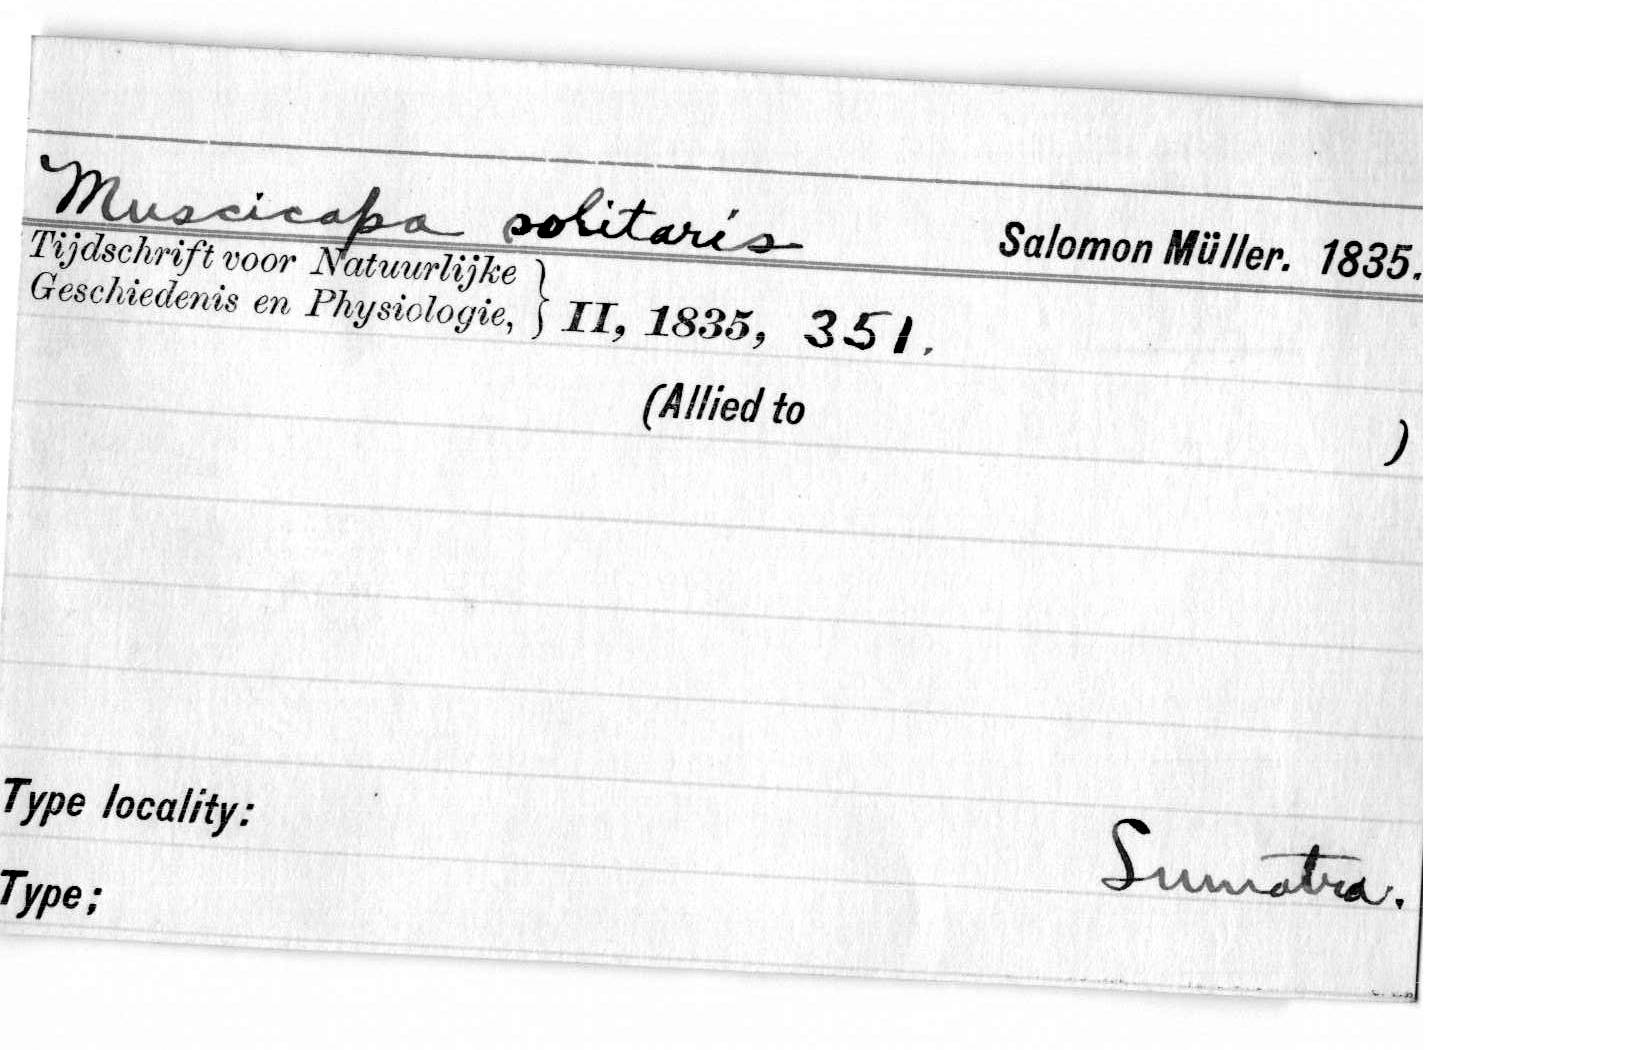 Muscicapa solitaris Salomon Müller. 1835.
Tijdschrift voor Natuurlijke
Geschiedenis en Physiologie, } II, 1835, 351.
(Allied to )
Type locality:
Sumatra.
Type;